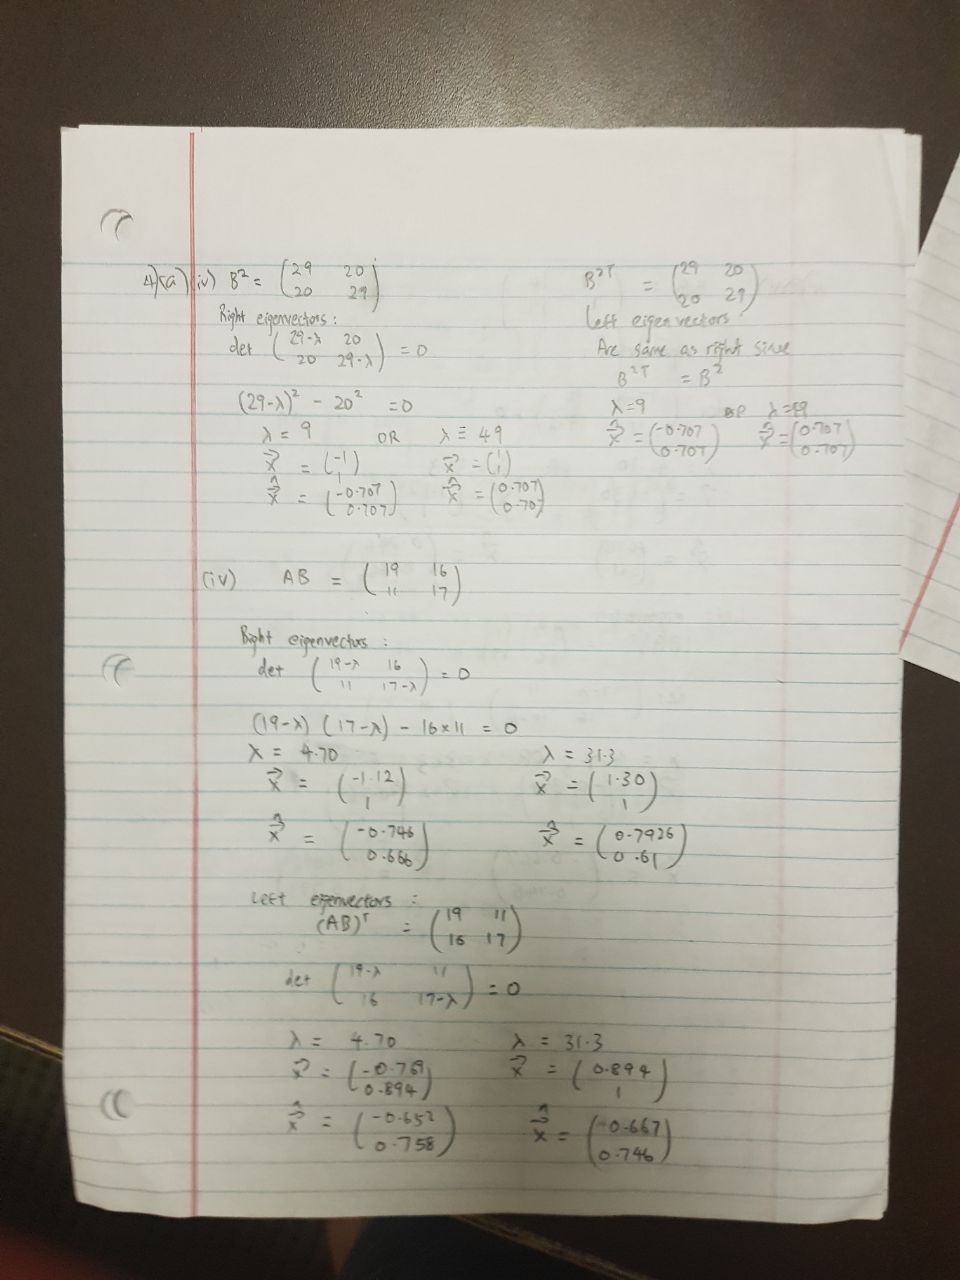 4)(a)(iv) B² = (29 20
20 29)
Right eigenvectors:
det (29-λ 20
20 29-λ) = 0
(29-λ)² - 20² = 0
λ = 9 OR λ = 49
x⃗ = (-1
1) x⃗ = (1
1)
x⃗̂ = (-0.707
0.707) x⃗̂ = (0.707
0.70)
B²ᵀ = (29 20
20 29)
Left eigenvectors
Are same as right since
B²ᵀ = B²
λ=9 OR λ=49
x⃗̂ = (-0.707
0.707) x⃗̂ = (0.707
0.707)
(iv) AB = (19 16
11 17)
Right eigenvectors:
det (19-λ 16
11 17-λ) = 0
(19-λ) (17-λ) - 16×11 = 0
λ = 4.70 λ = 31.3
x⃗ = (-1.12
1) x⃗ = (1.30
1)
x⃗̂ = (-0.746
0.666) x⃗̂ = (0.7926
0.61)
Left eigenvectors:
(AB)ᵀ = (19 11
16 17)
det (19-λ 11
16 17-λ) = 0
λ = 4.70 λ = 31.3
x⃗ = (-0.769
0.894) x⃗ = (0.894
1)
x⃗̂ = (-0.652
0.758) x⃗̂ = (-0.667
0.746)